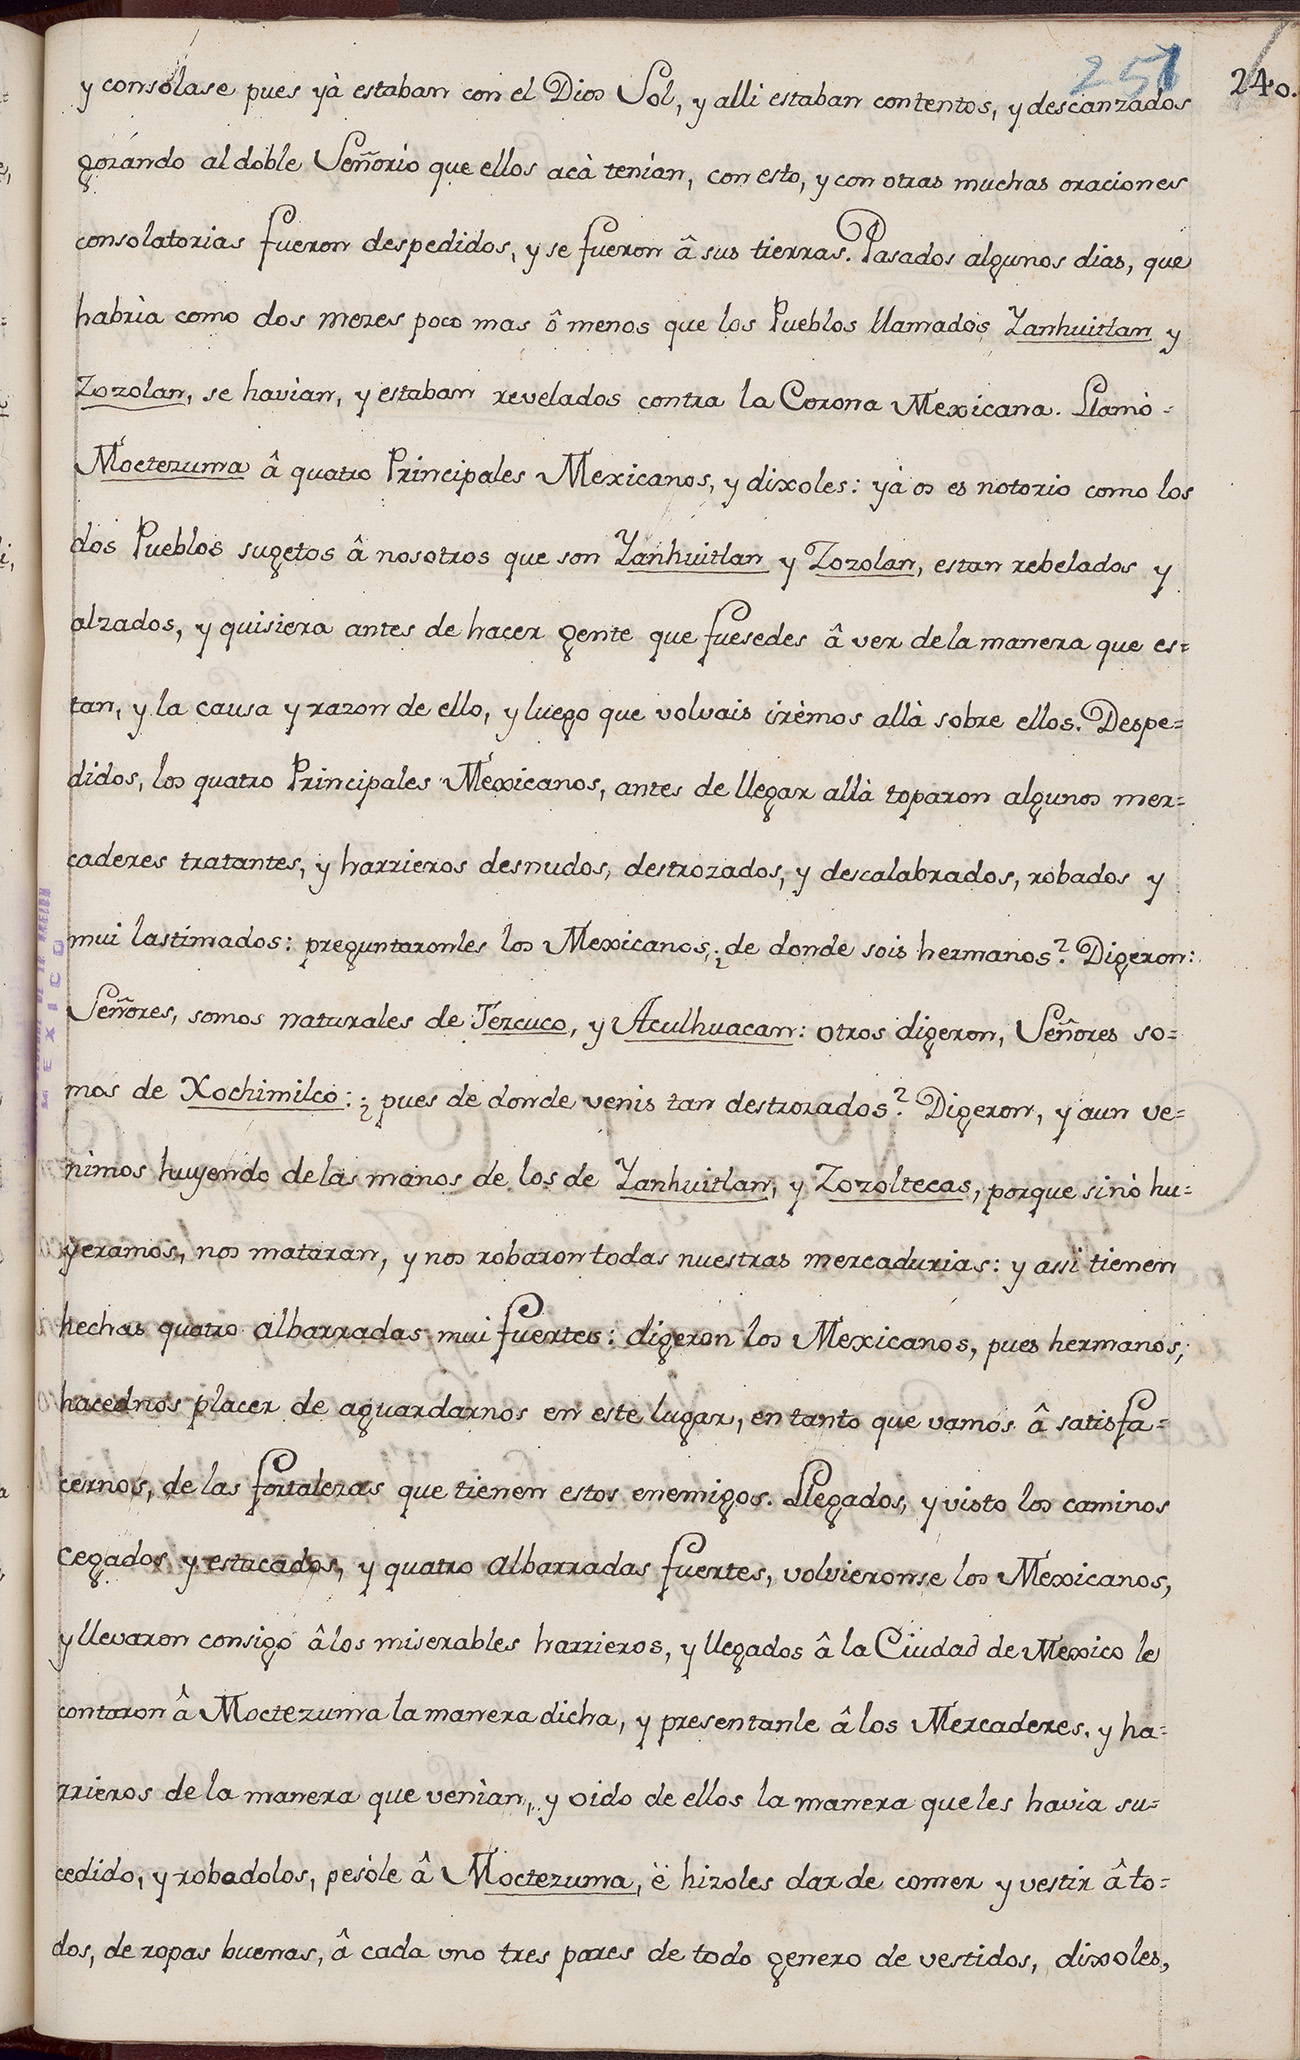 251 240.
y consolase pues yà estaban con el Dios Sol, y alli estaban contentos, y descanzados
gozando al doble Señorìo que ellos acà tenìan, con esto, y con otras muchas oraciones
consolatorias fueron despedidos, y se fueron â sus tierras. Pasados algunos dias, que
habrìa como dos meses poco mas ô menos que los Pueblos llamados Yanhuitlan y
Zozolan, se havìan, y estaban revelados contra la Corona Mexicana. Llamò =
Moctezuma â quatro Principales Mexicanos, y dixoles: yà os es notorio como los
dos Pueblos sugetos â nosotros que son Yanhuitlan y Zozolan, estan rebelados y
alzados, y quisiera antes de hacer gente que fuesedes â ver de la manera que es=
tan, y la causa y razon de ello, y luego que volvais irèmos allà sobre ellos. Despe=
didos, los quatro Principales Mexicanos, antes de llegar allà toparon algunos mer=
caderes tratantes, y harrieros desnudos, destrozados, y descalabrados, robados y
mui lastimados: preguntaronles los Mexicanos, ¿de donde sois hermanos? Digeron:
Señores, somos naturales de Tézcuco, y Aculhuacan: otros digeron, Señores so=
mos de Xochimilco: ¿pues de donde venis tan destrozados? Digeron, y aun ve=
nimos huyendo de las manos de los de Yanhuitlan, y Zozoltecas, porque sinò hu=
yeramos, nos mataran, y nos robaron todas nuestras mercadurias: y assi tienen
hechas quatro albarradas mui fuertes: digeron los Mexicanos, pues hermanos,
hacednos placer de aguardarnos en este lugar, en tanto que vamos â satisfa=
cernos, de las fortalezas que tienen estos enemigos. Llegados, y visto los caminos
cegados y estacados, y quatro albarradas fuertes, volvieronse los Mexicanos,
y llevaron consigo â los miserables harrieros, y llegados â la Ciudad de Mexico le
contaron â Moctezuma la manera dicha, y presentanle â los Mercaderes, y ha=
rrieros de la manera que venìan, y oido de ellos la manera que les havia su=
cedido, y robadolos, pesòle â Moctezuma, è hizoles dar de comer y vestir â to=
dos, de ropas buenas, â cada uno tres pares de todo genero de vestidos, dixoles,